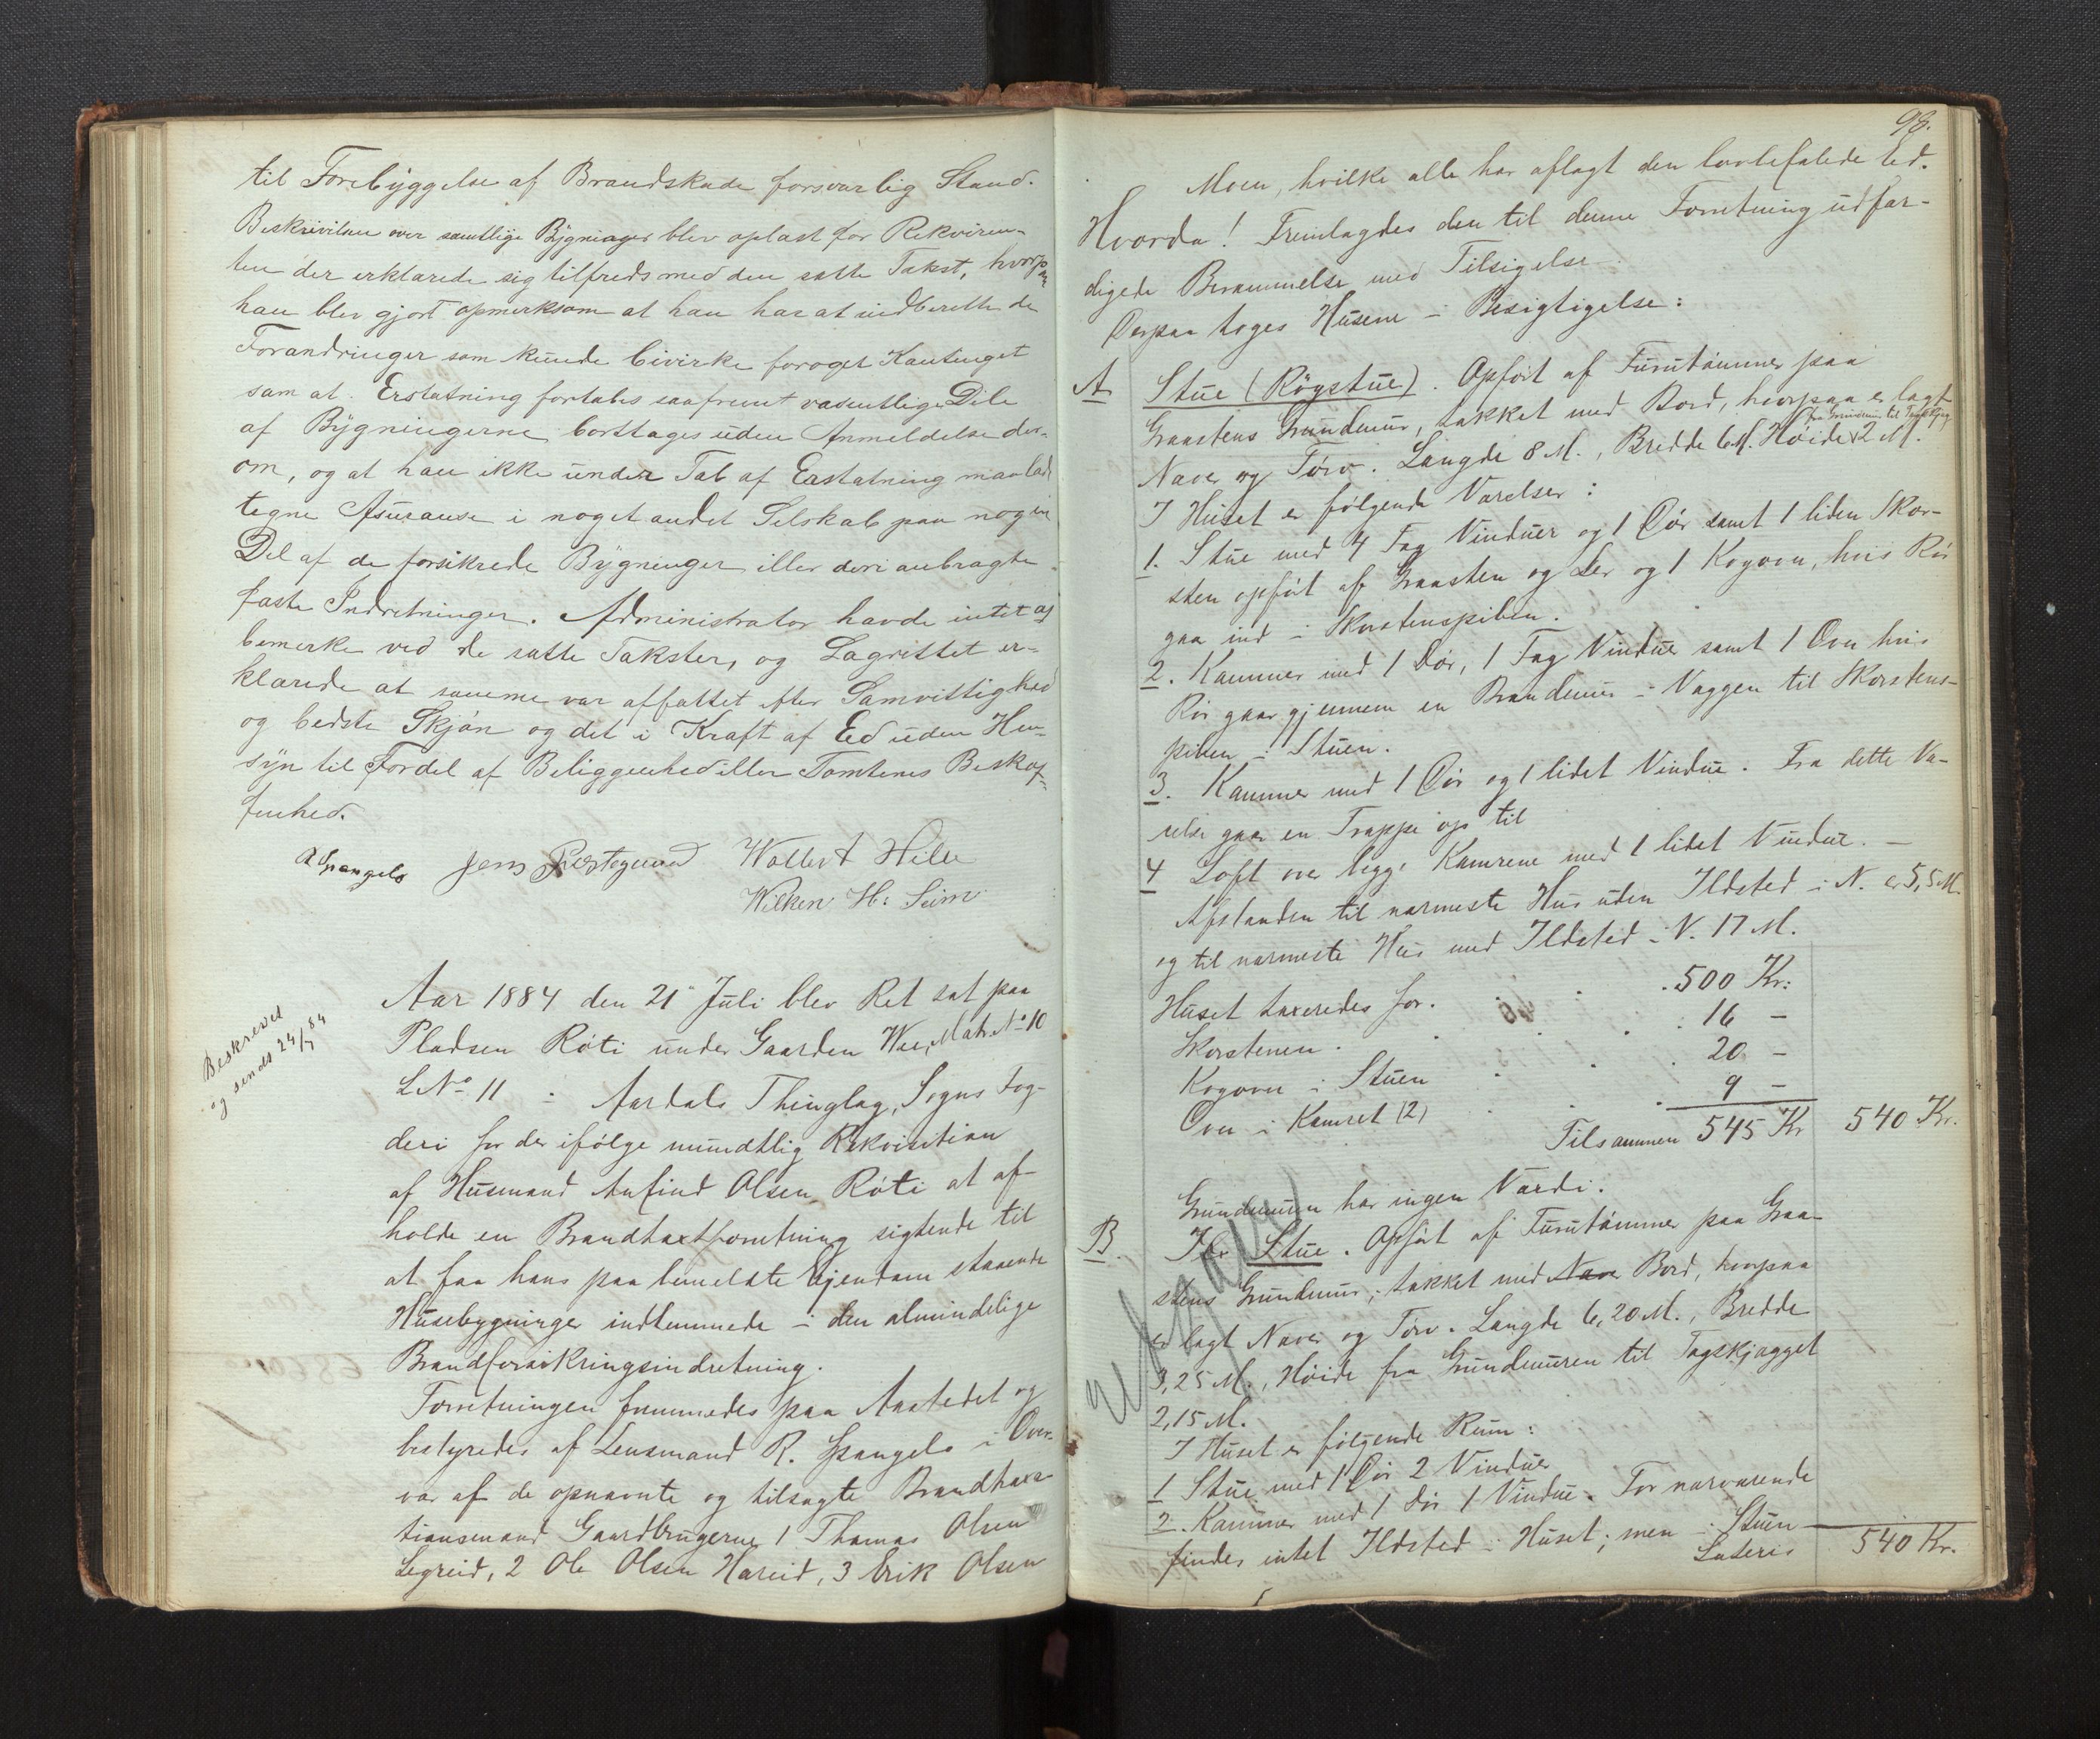 til Forebyggelse af Brandskade forsvarlig Stand.
Beskrivelsen over samtlige Bygninger blev oplæst for Rekviren-
ten der erklærede sig tilfreds med den satte Takst, hvorpaa
han blev gjort opmerksom at han har at indberette de
Forandringer som kunde bivirke forøget Kontingent
sam at Erstatning fortabes saafremt væsentlige Dele
af Bygningerne borttages uden Anmeldelse der-
om, og at han ikke under Tab af Erstatning maa lade
tegne Assurance i noget andet Selskab paa nogen
Del af de forsikrede Bygninger eller deri anbragte
faste Indretninger. Administrator havde intet at
bemerke ved de satte Takster, og Lagrettet er-
klærede at samme var affattet efter Samvittighed
og bedste Skjøn og det i Kraft af Ed uden Hen-
syn til Fordel af Beliggenhed eller Tomtenes Beskaf-
fenhed.
R Spangelo Jens Prestegaard Wollert Hille
Wilken H: Seim
Beskrevet
og sendt 24/7 84
Aar 1884 den 21 Juli blev Ret sat paa
Pladsen Röti under Gaarden Wee, Matr. No 10
L No 11 i Aardals Thinglag, Sogns Fog-
deri for der ifölge mundtlig Rekvisition
af Husmand Anfind Olsen Röti at af-
holde en Brandtaxtforretning sigtende til
at faa hans paa bemeldte Ejendom staaende
Husebygninger indlemmede i den almindelige
Brandforsikringsindretning.
Forretningen fremmedes paa Aastedet og
bestyredes af Lensmand R. Spangelo i Over-
vær af de opnævnte og tilsagte Brandtaxa-
tionsmænd Gaardbrugerne 1 Thomas Olsen
Legreid, 2 Ole Olsen Hareid, 3 Erik Olsen
98.
Moen, hvilke alle har aflagt den lovbefalede Ed.
Hvorda! Fremlagdes den til denne Forretning udfær-
digede Berammelse med Tilsigelse
Derpaa toges Husene i Besigtigelse:
A Stue (Rögstue). Opfört af Furutömmer paa
Graastens Grundmur, takket med Bord, hvorpaa er lagt
fra Grundmur til Tagskjæg
Næver og Törv. Længde 8 M., Bredde 6 M. Höide 2 M.
I Huset er fölgende Værelser:
1. Stue med 4 Fag Vinduer og 1 Dör samt 1 liden Skor-
sten opfört af Graasten og Ler og 1 Kogovn, hvis Rör
gaa ind i Skorstenspiben.
2. Kammer med 1 Dör, 1 Fag Vinduer samt 1 Ovn hvis
Rör gaar gjennem en Brandmur i Væggen til Skorstens-
piben i Stuen.
3. Kammer med 1 Dör og 1 lidet Vindue. Fra dette Væ-
relse gaar en Trappe op til
4 Loft over begge Kamrene med 1 lidet Vindue. —
Afstanden til nærmeste Hus uden Ildsted i N. er 5,5 M.
og til nærmeste Hus med Ildsted i N. 17 M.
Huset taxeredes for. . . . 500 Kr:
Skorstenen . . . . 16 —
Kogovn i Stuen . . . 20 —
Ovn i Kamret (2) . . . 9 —
Tilsammen 545 Kr 540 Kr.
Grundmuren har ingen Værdi.
udgaar
B. Stue. Opfört af Furutömmer paa Graa-
stens Grundmur, takket med Næve Bord, hvorpaa
er lagt Næver og Törv. Længde 6,20 M., Bredde
3,25 M., Höide fra Grundmuren til Tagskjægget
2,15 M.
I Huset er fölgende Rum:
1 Stue med 1 Dör 2 Vinduer
2. Kammer med 1 Dör 1 Vindue. For nærværende
findes intet Ildsted i Huset; men i Stuen
Lateris 540 Kr.